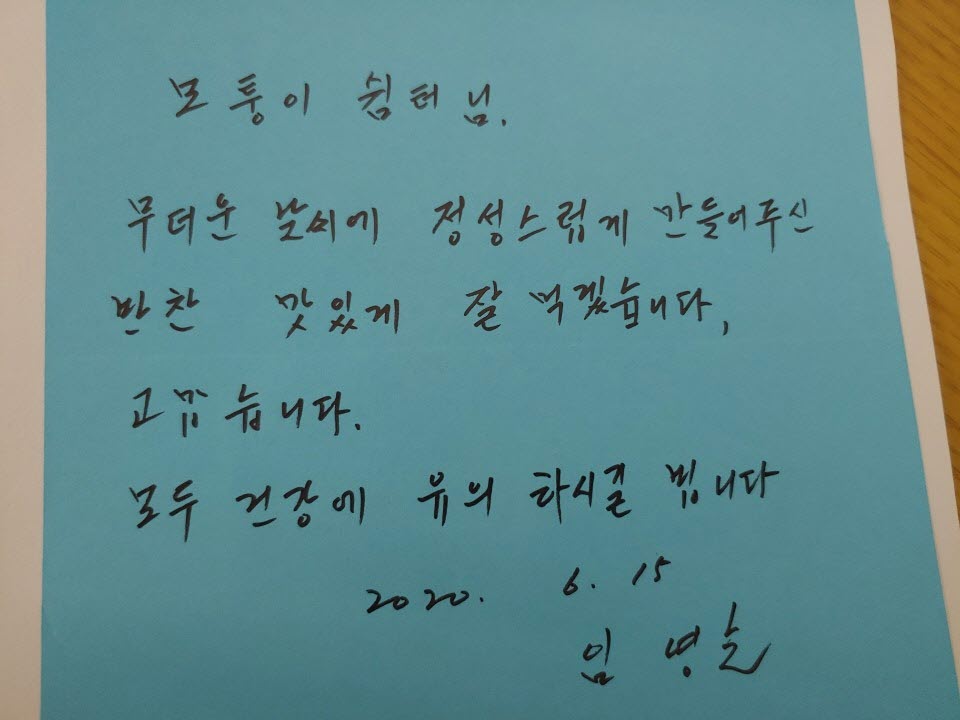 모퉁이 쉼터 님.
무더운 날씨에 정성스럽게 만들어주신
반찬 맛있게 잘 먹겠습니다,
고맙습니다.
모두 건강에 유의 하시길 빕니다
2020. 6. 15
임